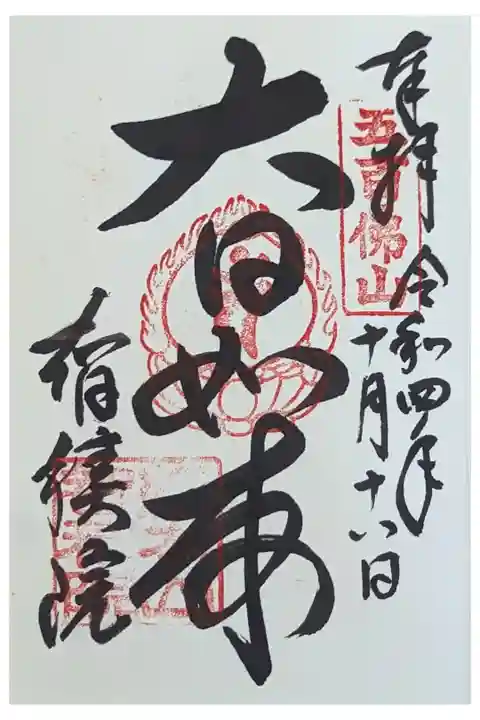 奉拝
五百佛山
令和四年
十月十八日
大日如来
智積院